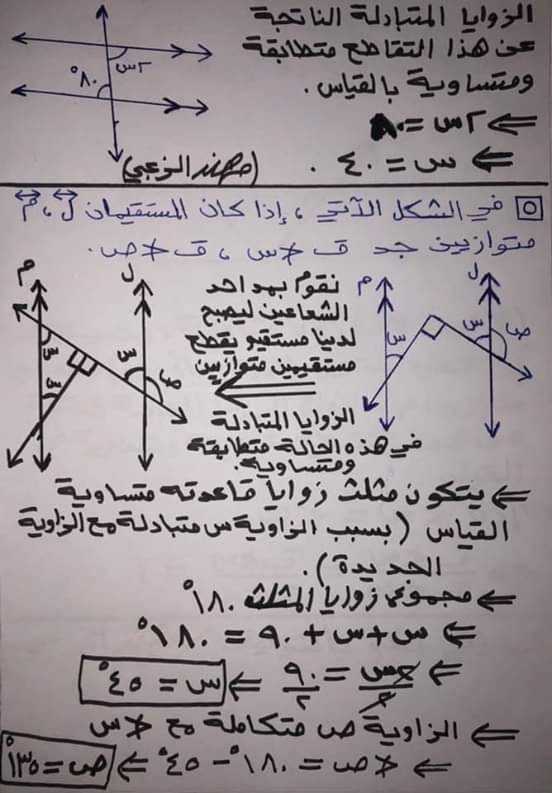 الزوايا المتبادلة الناتجة
عن هذا التقاطع متطابقة
ومتساوية بالقياس.
⇐ ٢س = ٨٠
⇐ س = ٤٠ .
(مهند الزعبي)
٢س
٨٠°
٥ في الشكل الآتي ، إذا كان المستقيمان ل ، م
متوازيين جد ق∡س ، ق∡ص.
م
ل
س
س
ص
نقوم بمد احد
الشعاعين ليصبح
لدينا مستقيم يقطع
مستقيمين متوازيين
الزوايا المتبادلة
في هذه الحالة متطابقة
ومتساوية.
م
ل
س
س
س
ص
⇐ يتكون مثلث زوايا قاعدته متساوية
القياس (بسبب الزاوية س متبادلة مع الزاوية
الجديدة).
⇐ مجموع زوايا المثلث ١٨٠°
⇐ س + س + ٩٠ = ١٨٠°
⇐ ٢س/٢ = ٩٠/٢ ⇐ س = ٤٥°
⇐ الزاوية ص متكاملة مع ∡س
⇐ ∡ص = ١٨٠° - ٤٥° ⇐ ص = ١٣٥°